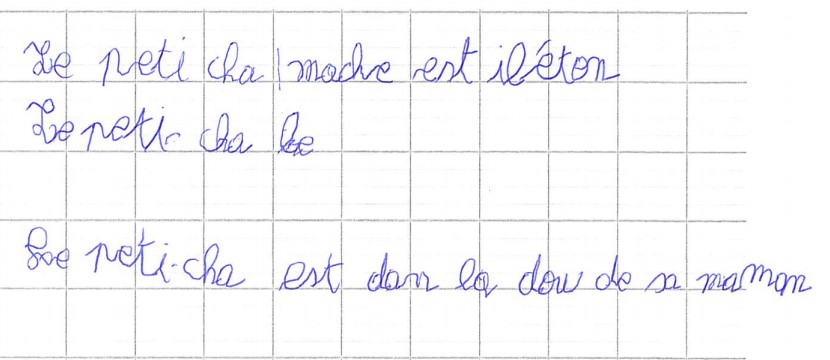 Le peti cha mache est il éton
Le peti cha be
Le peti-cha est dan la dou de sa maman